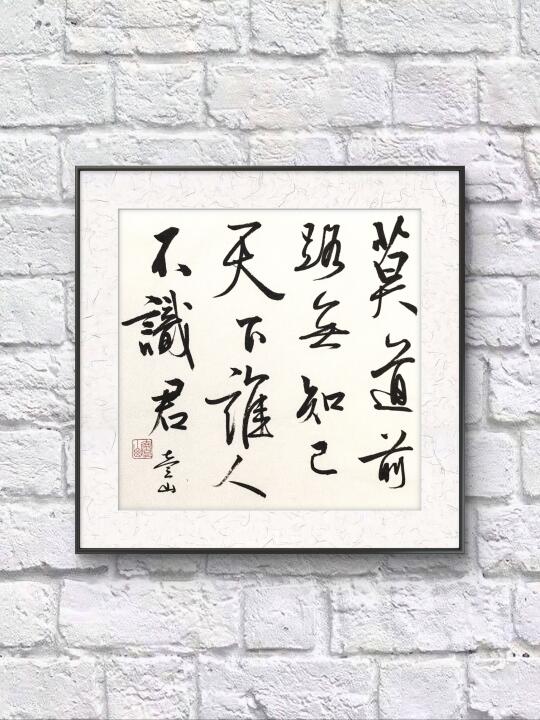 莫道前
路無知己
天下誰人
不識君